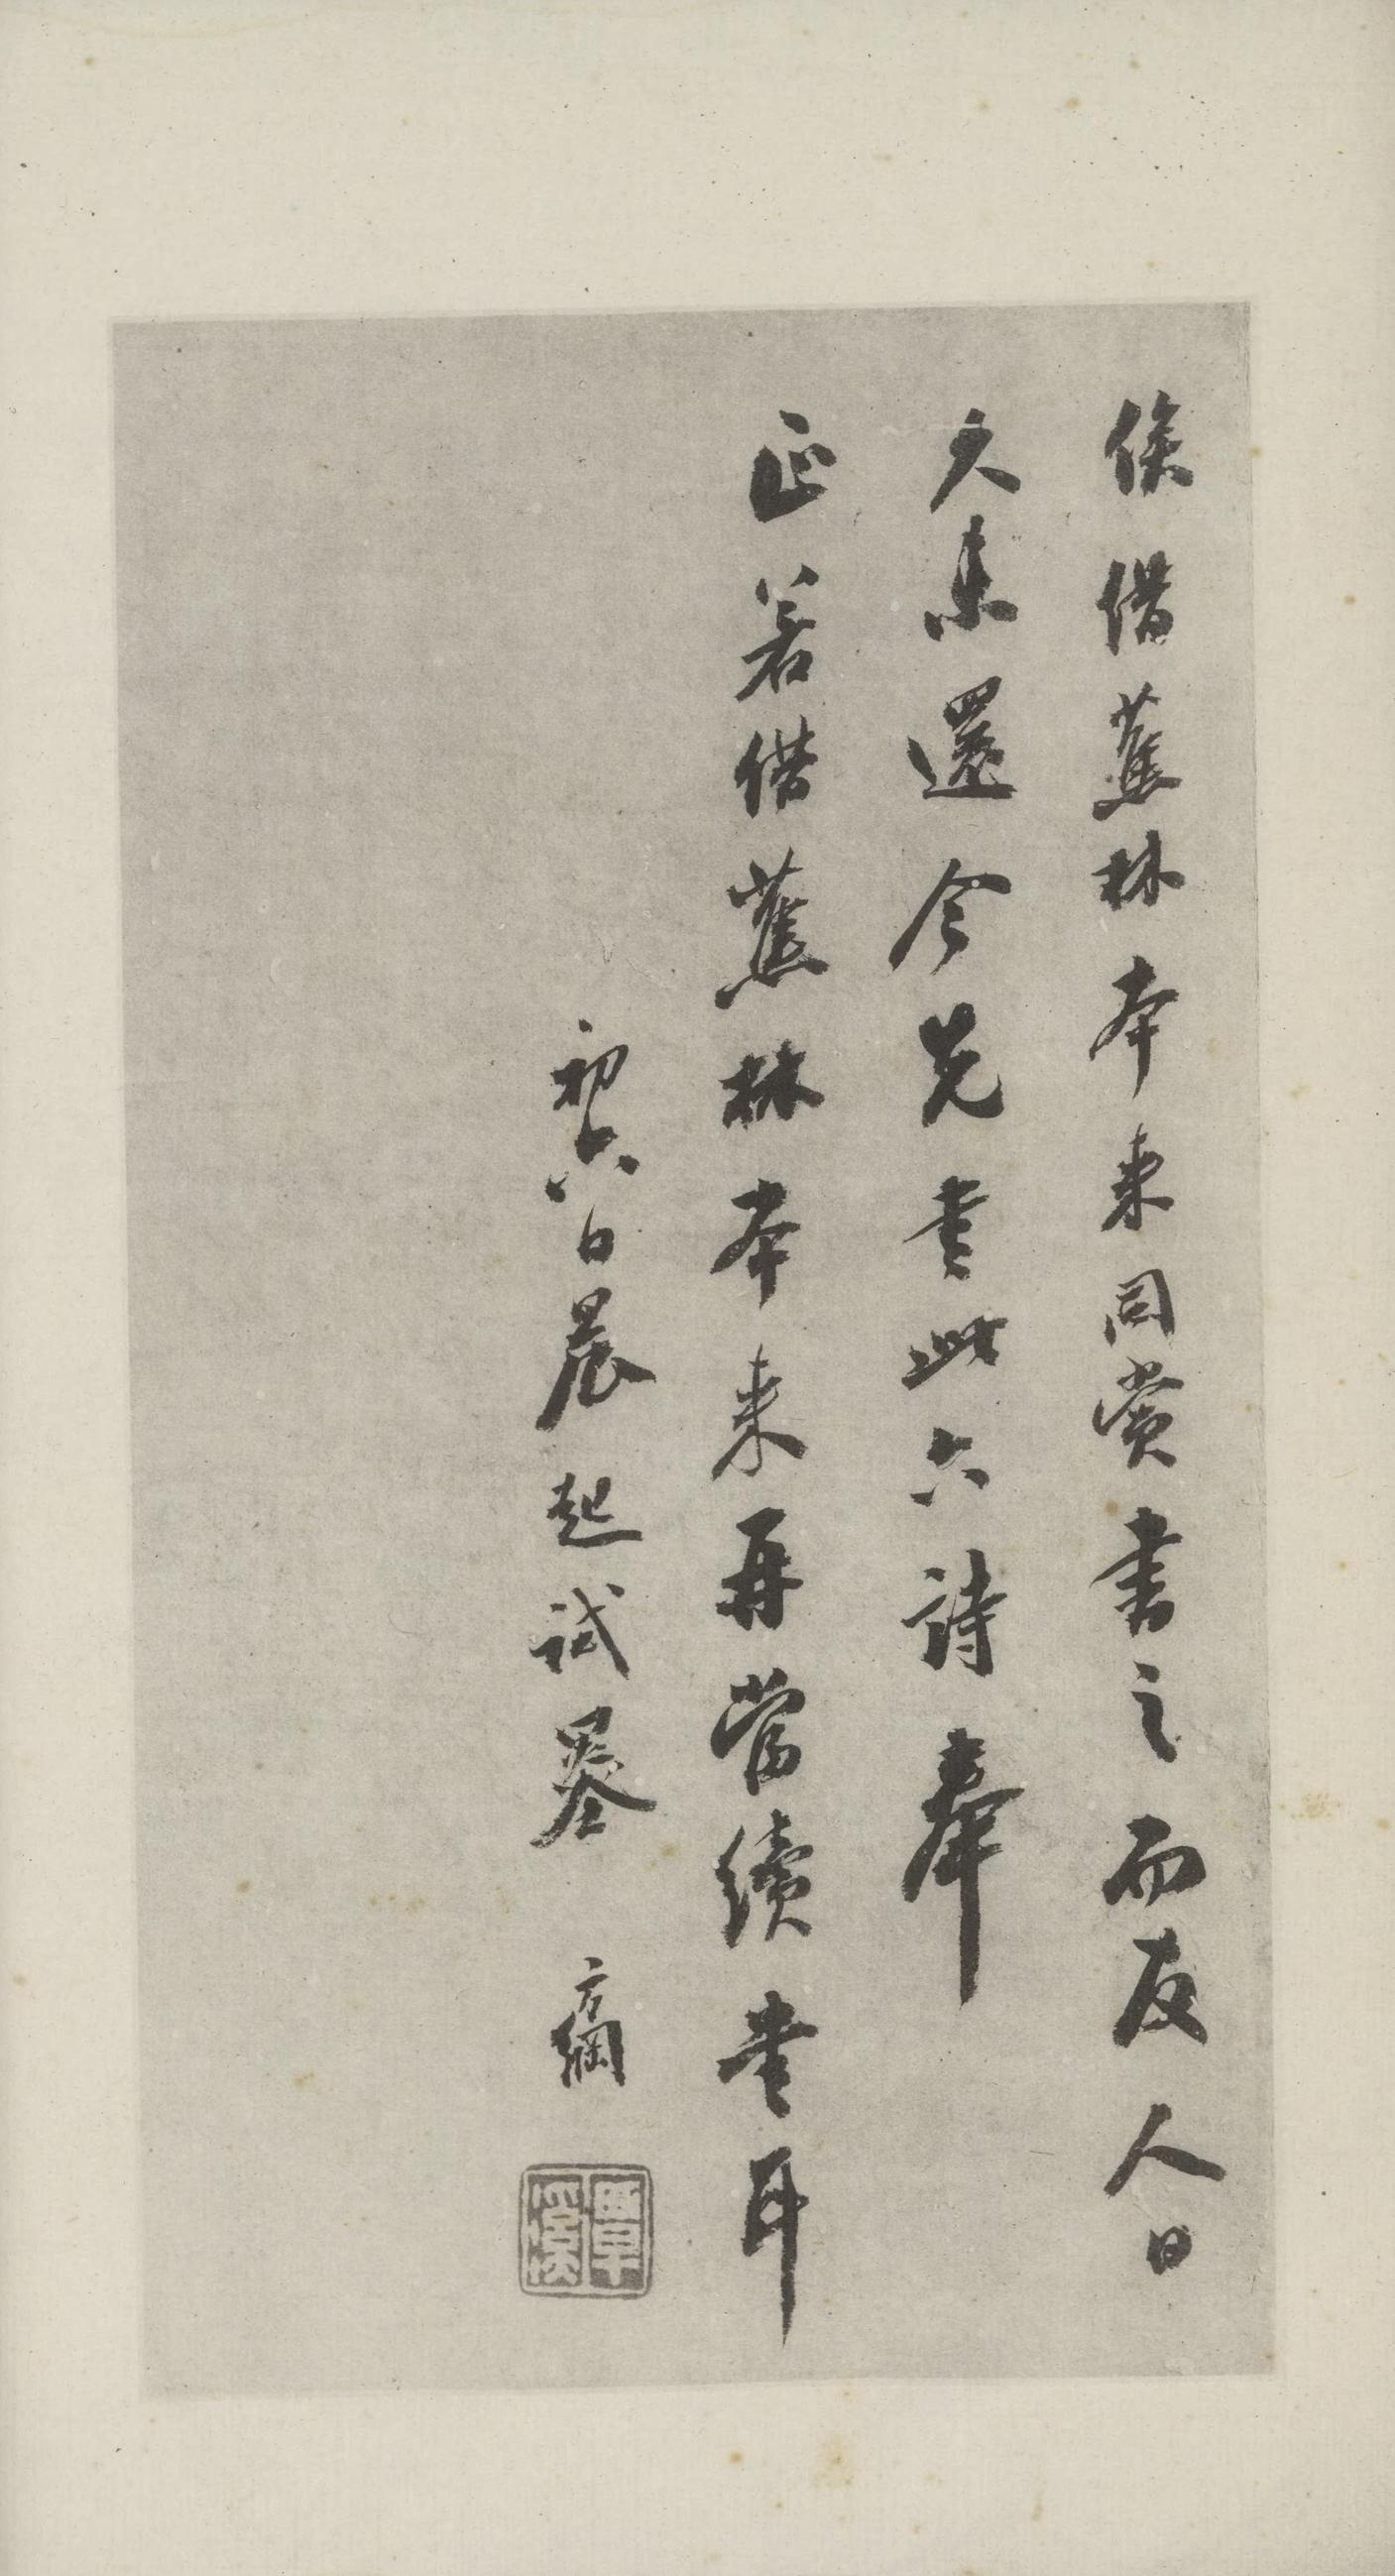 俟借蕉林本来同賞書之而友人日
久未還今先書此六詩奉
正若借蕉林本来再當續書耳
初六日晨起試墨 方綱
覃溪